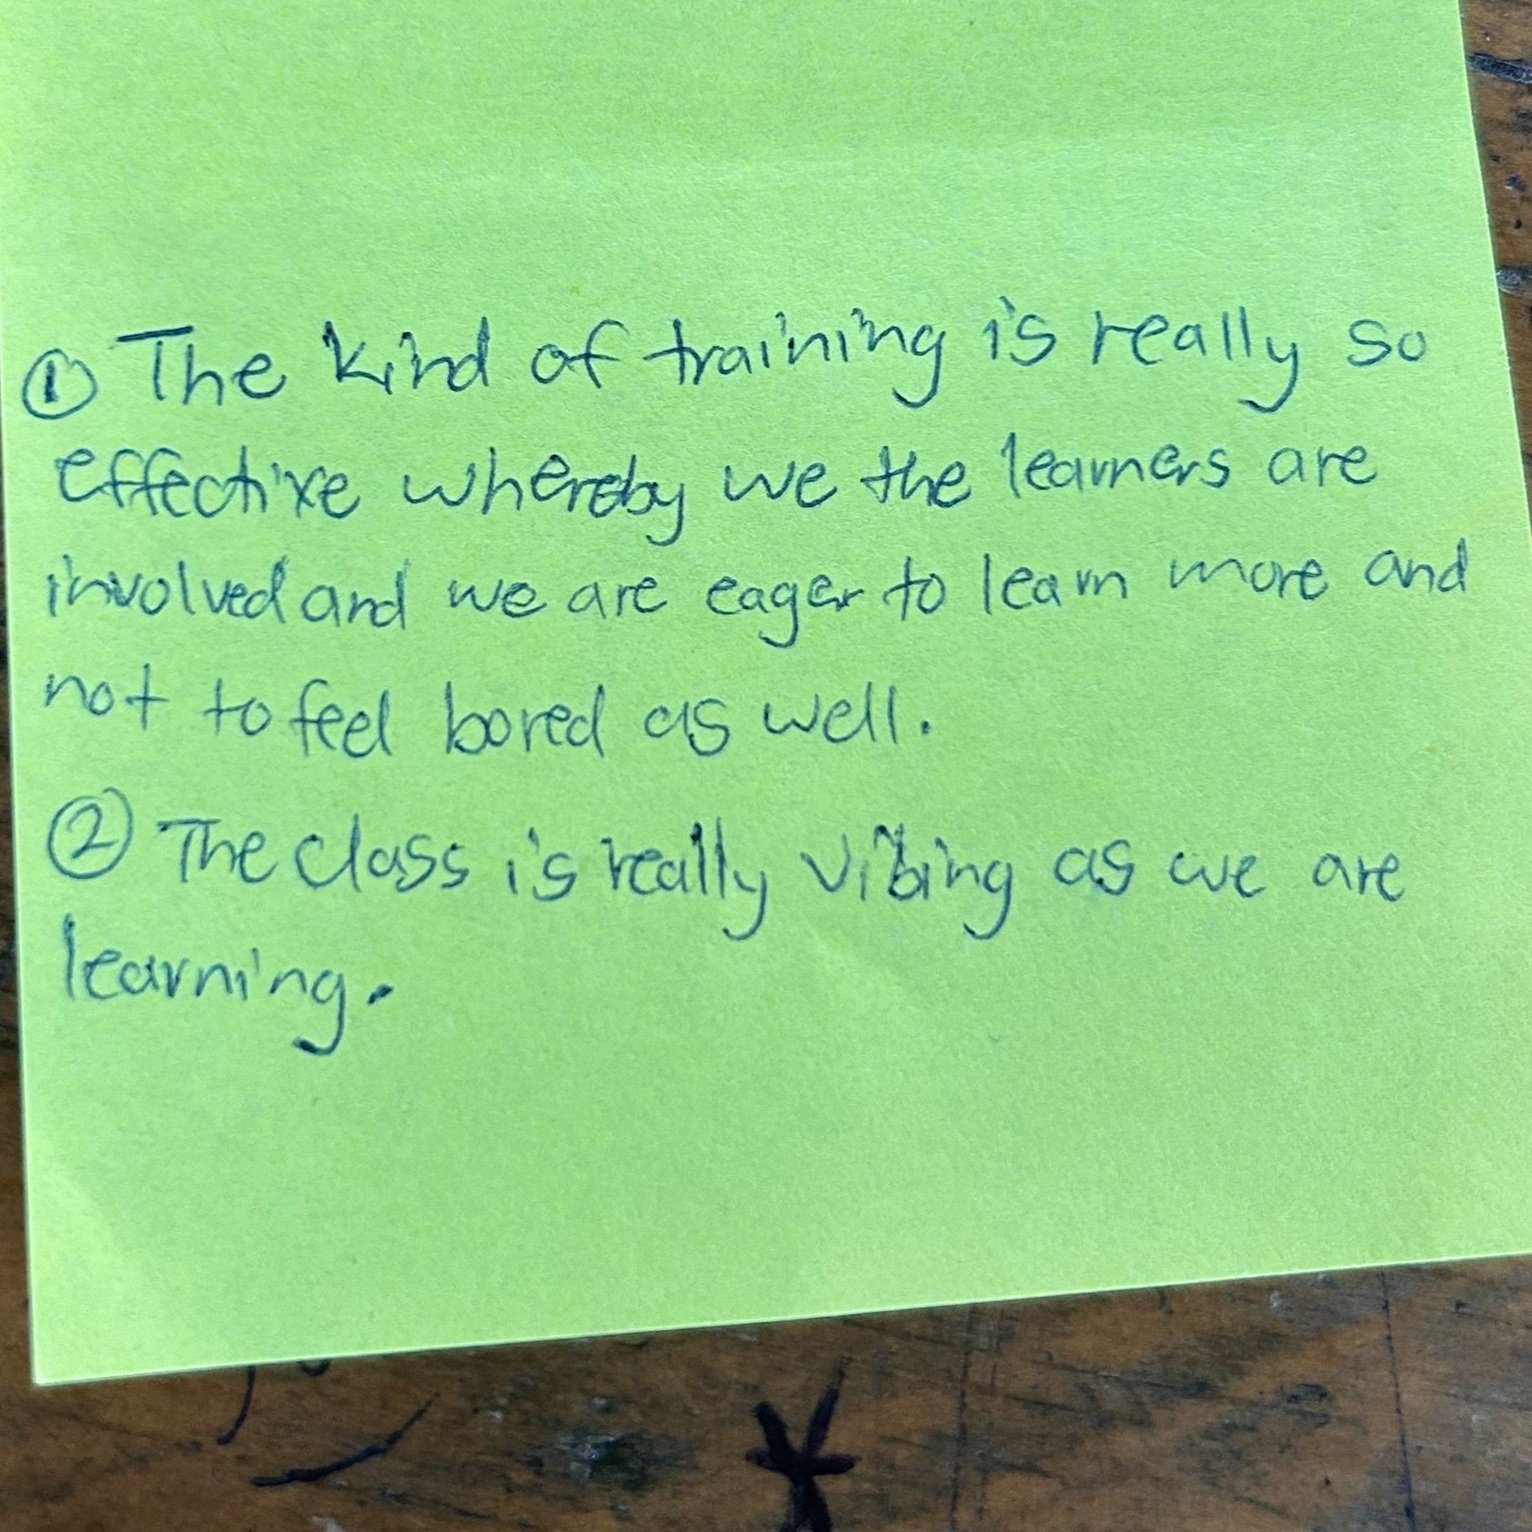 ① The kind of training is really so
effective whereby we the learners are
involved and we are eager to learn more and
not to feel bored as well.
② The class is really vibing as we are
learning.